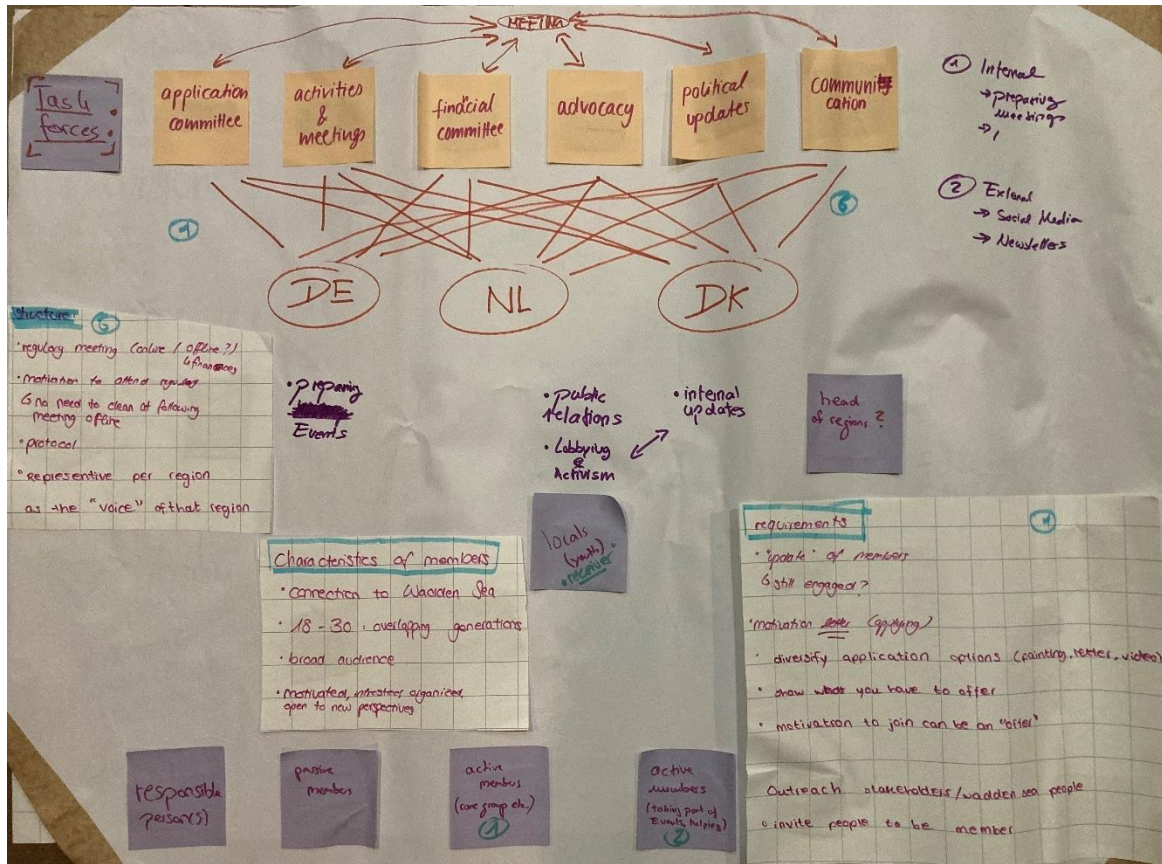 MEETING
Task
forces
application
committee
activities
&
meetings
financial
committee
advocacy
political
updates
communi
cation
① Internal
→ preparing
meetings
→
② External
→ Social Media
→ Newsletters
DE
NL
DK
Structure
• regulary meeting (online / offline?)
↳ finances
• motivation to attend regulary
↳ no need to clean at following
meeting offline
• protocol
• Representive per region
as the "voice" of that region
• preparing
Events
• public
relations
• Lobbying
&
Activism
• internal
updates
head
of regions ?
locals
(youth)
• receiver
Characteristics of members
• connection to Wadden Sea
• 18 - 30, overlapping generations
• broad audience
• motivated, intrested, organized,
open to new perspectives
requirements
• "update" of members
↳ still engaged?
• motivation letter (applying)
• diversify application options (painting, letter, video)
• show what you have to offer
• motivation to join can be an "offer"
Outreach stakeholders/wadden sea people
• invite people to be member
responsible
person(s)
passive
members
active
members
(core group etc.)
①
active
members
(taking part of
Events, helping)
②